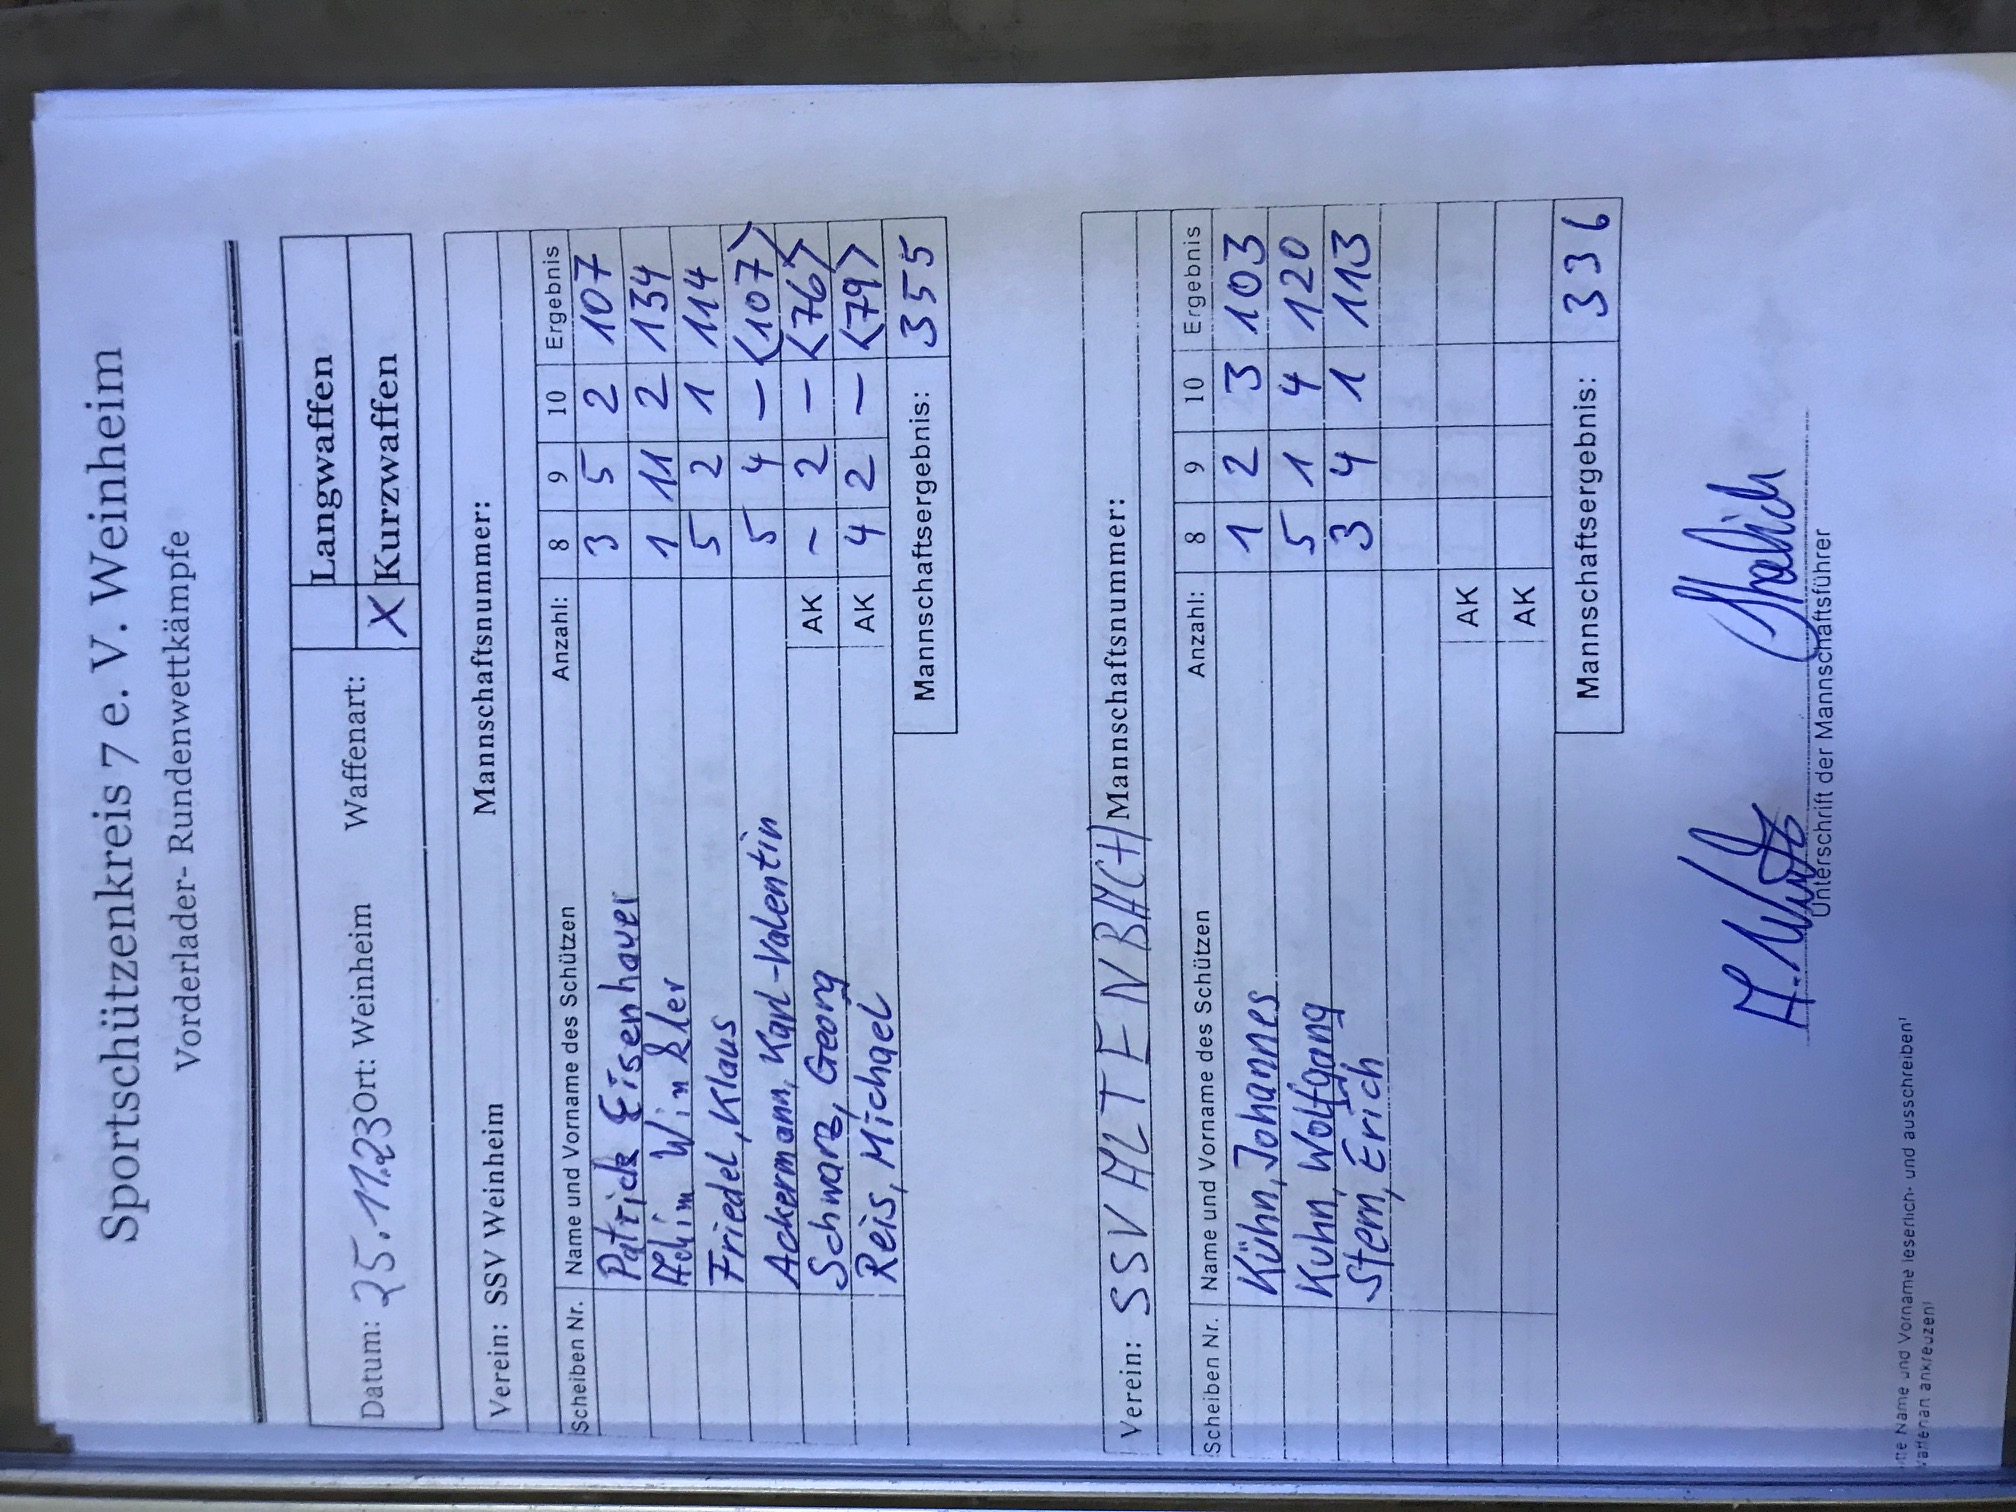 Sportschützenkreis 7 e. V. Weinheim
Vorderlader- Rundenwettkämpfe
Langwaffen
Datum: 25.11.23 Ort: Weinheim Waffenart: X Kurzwaffen
Verein: SSV Weinheim Mannschaftsnummer:
Scheiben Nr. Name und Vorname des Schützen Anzahl: 8 9 10 Ergebnis
Patrick Eisenhauer 3 5 2 107
Achim Winkler 1 11 2 134
Friedel, Klaus 5 2 1 114
Ackermann, Karl-Valentin 5 4 - <107>
Schwarz, Georg AK - 2 - <76>
Reis, Michael AK 4 2 - <79>
Mannschaftsergebnis: 355
Verein: SSV ALTENBACH Mannschaftsnummer:
Scheiben Nr. Name und Vorname des Schützen Anzahl: 8 9 10 Ergebnis
Kühn, Johannes 1 2 3 103
Kuhn, Wolfgang 5 1 4 120
Stern, Erich 3 4 1 113
AK
AK
Mannschaftsergebnis: 336
Unterschrift der Mannschaftsführer
Name und Vorname leserlich- und ausschreiben!
ankreuzen!